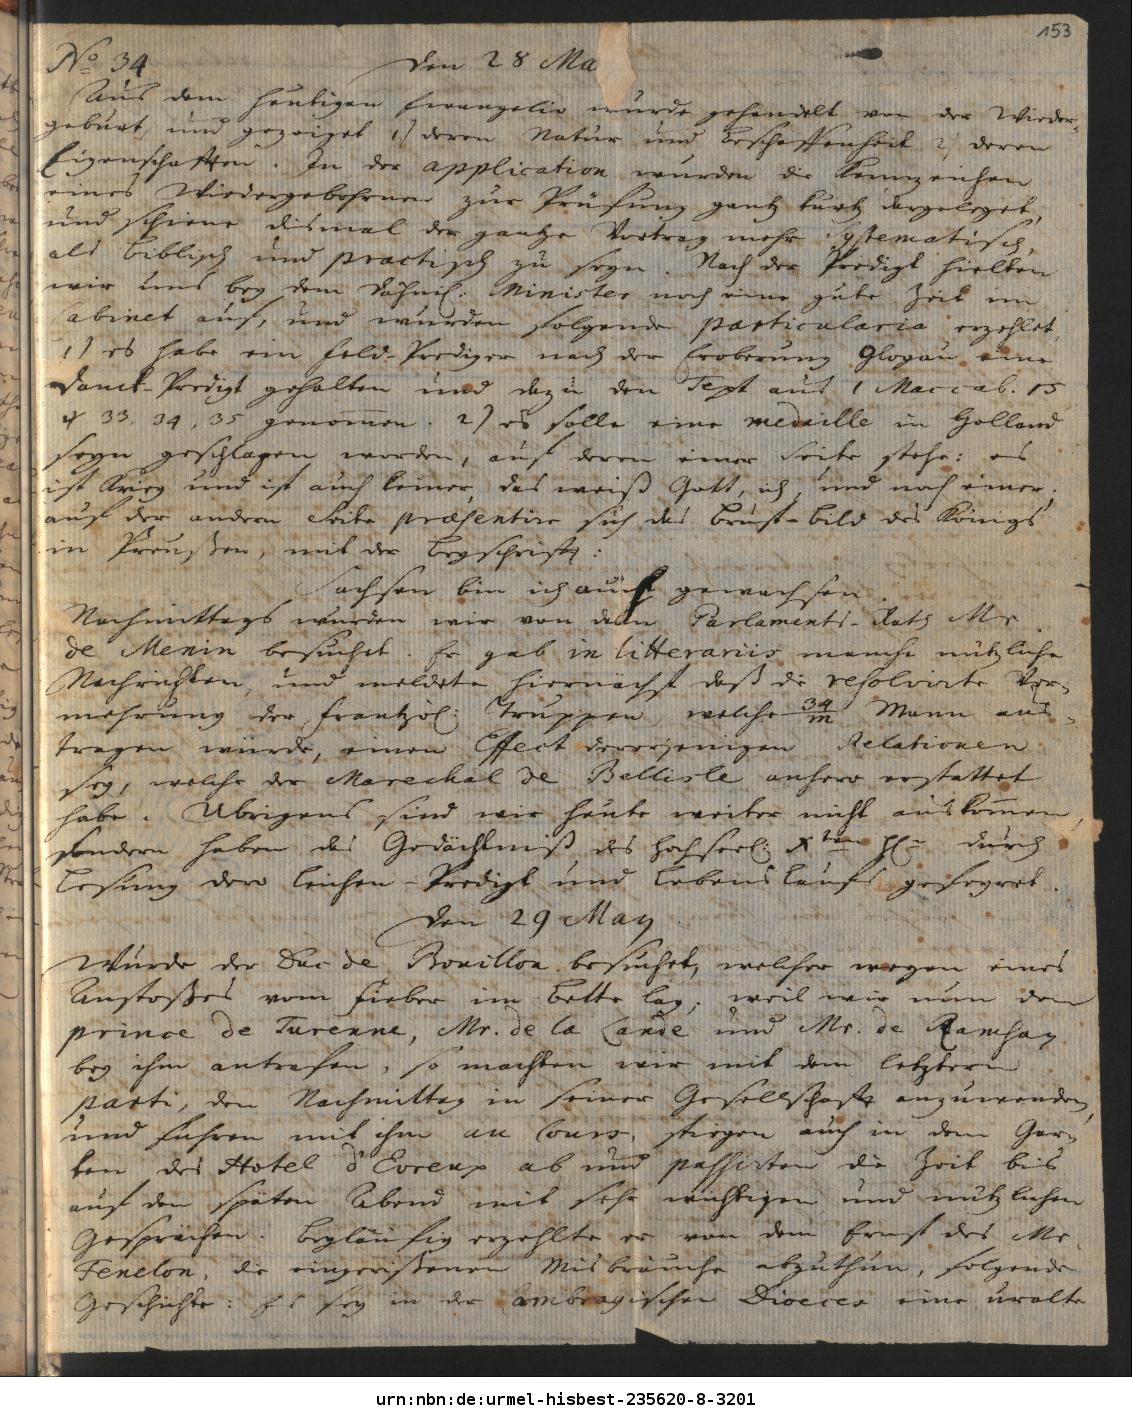 153
No 34 den 28 Ma
Aus dem heutigen Evangelio wurde gehandelt von der Wieder-
geburt, und gezeiget 1) deren Natur und Beschaffenheit 2) deren
Eigenschafften. In der application wurden die Kennzeichen
eines Wiedergebohrnen zur Prüfung gantz kurtz dargeleget,
und schiene dismal der gantze Vortrag mehr systematisch,
als biblisch und practisch zu seyn. Nach der Predigt hielten
wir uns bey dem Dähnis. Minister noch eine gute Zeit im
Cabinet auf, und wurden folgende particularia erzehlet,
1) es habe ein Feld-Prediger nach der Eroberung Glogau eine
Danck-Predigt gehalten und dazu den Text aus 1 Maccab. 15
v 33. 34, 35 genommen. 2) es solle eine medaille in Holland
seyn geschlagen worden, auf deren einer Seite stehe: es
ist Krieg und ist auch keiner, das weiß Gott, ich, und noch einer;
auf der andern Seite præsentire sich das Brust-Bild des Königs
in Preußen, mit der Beyschrifft:
Sachsen bin ich auch gewachsen.
Nachmittags wurden wir von dem Parlaments-Rath Mr.
de Menin besuchet. Er gab in litterariis manche nützliche
Nachrichten, und meldete hiernächst daß die resolvirte Ver-
mehrung der frantzös: Truppen, welche 34/m Mann aus-
tragen würde, einen Effect dererjenigen Relationen
sey, welche der Marechal de Bellisle anhero erstattet
habe. Übrigens sind wir heute weiter nicht auskommen,
sondern haben das Gedächtniß des hochseel. durch
Lesung dero Leichen-Predigt und Lebenslaufs gesegnet.
den 29 May
Wurde der Duc de Bouillon besuchet, welcher wegen eines
Anstoßes vom Fieber im Bette lag; weil wir nun den
prince de Turenne, Mr. de la Cande und Mr. de Ramsay
bey ihm antrafen, so machten wir mit dem letztern
parti, den Nachmittag in seiner Gesellschafft anzuwenden,
und fuhren mit ihm au Cours, stiegen auch in dem Gar-
ten des Hotel d'Evreux ab und passirten die Zeit bis
auf den späten Abend mit sehr wichtigen und nützlichen
Gesprächen. Beyläufig erzehlte er von dem Ernst des Mr.
Fenelon, die eingerißenen Misbräuche abzuthun, folgende
Geschichte: Es sey in der Cambragischen Dioeces eine uralte
urn:nbn:de:urmel-hisbest-235620-8-3201